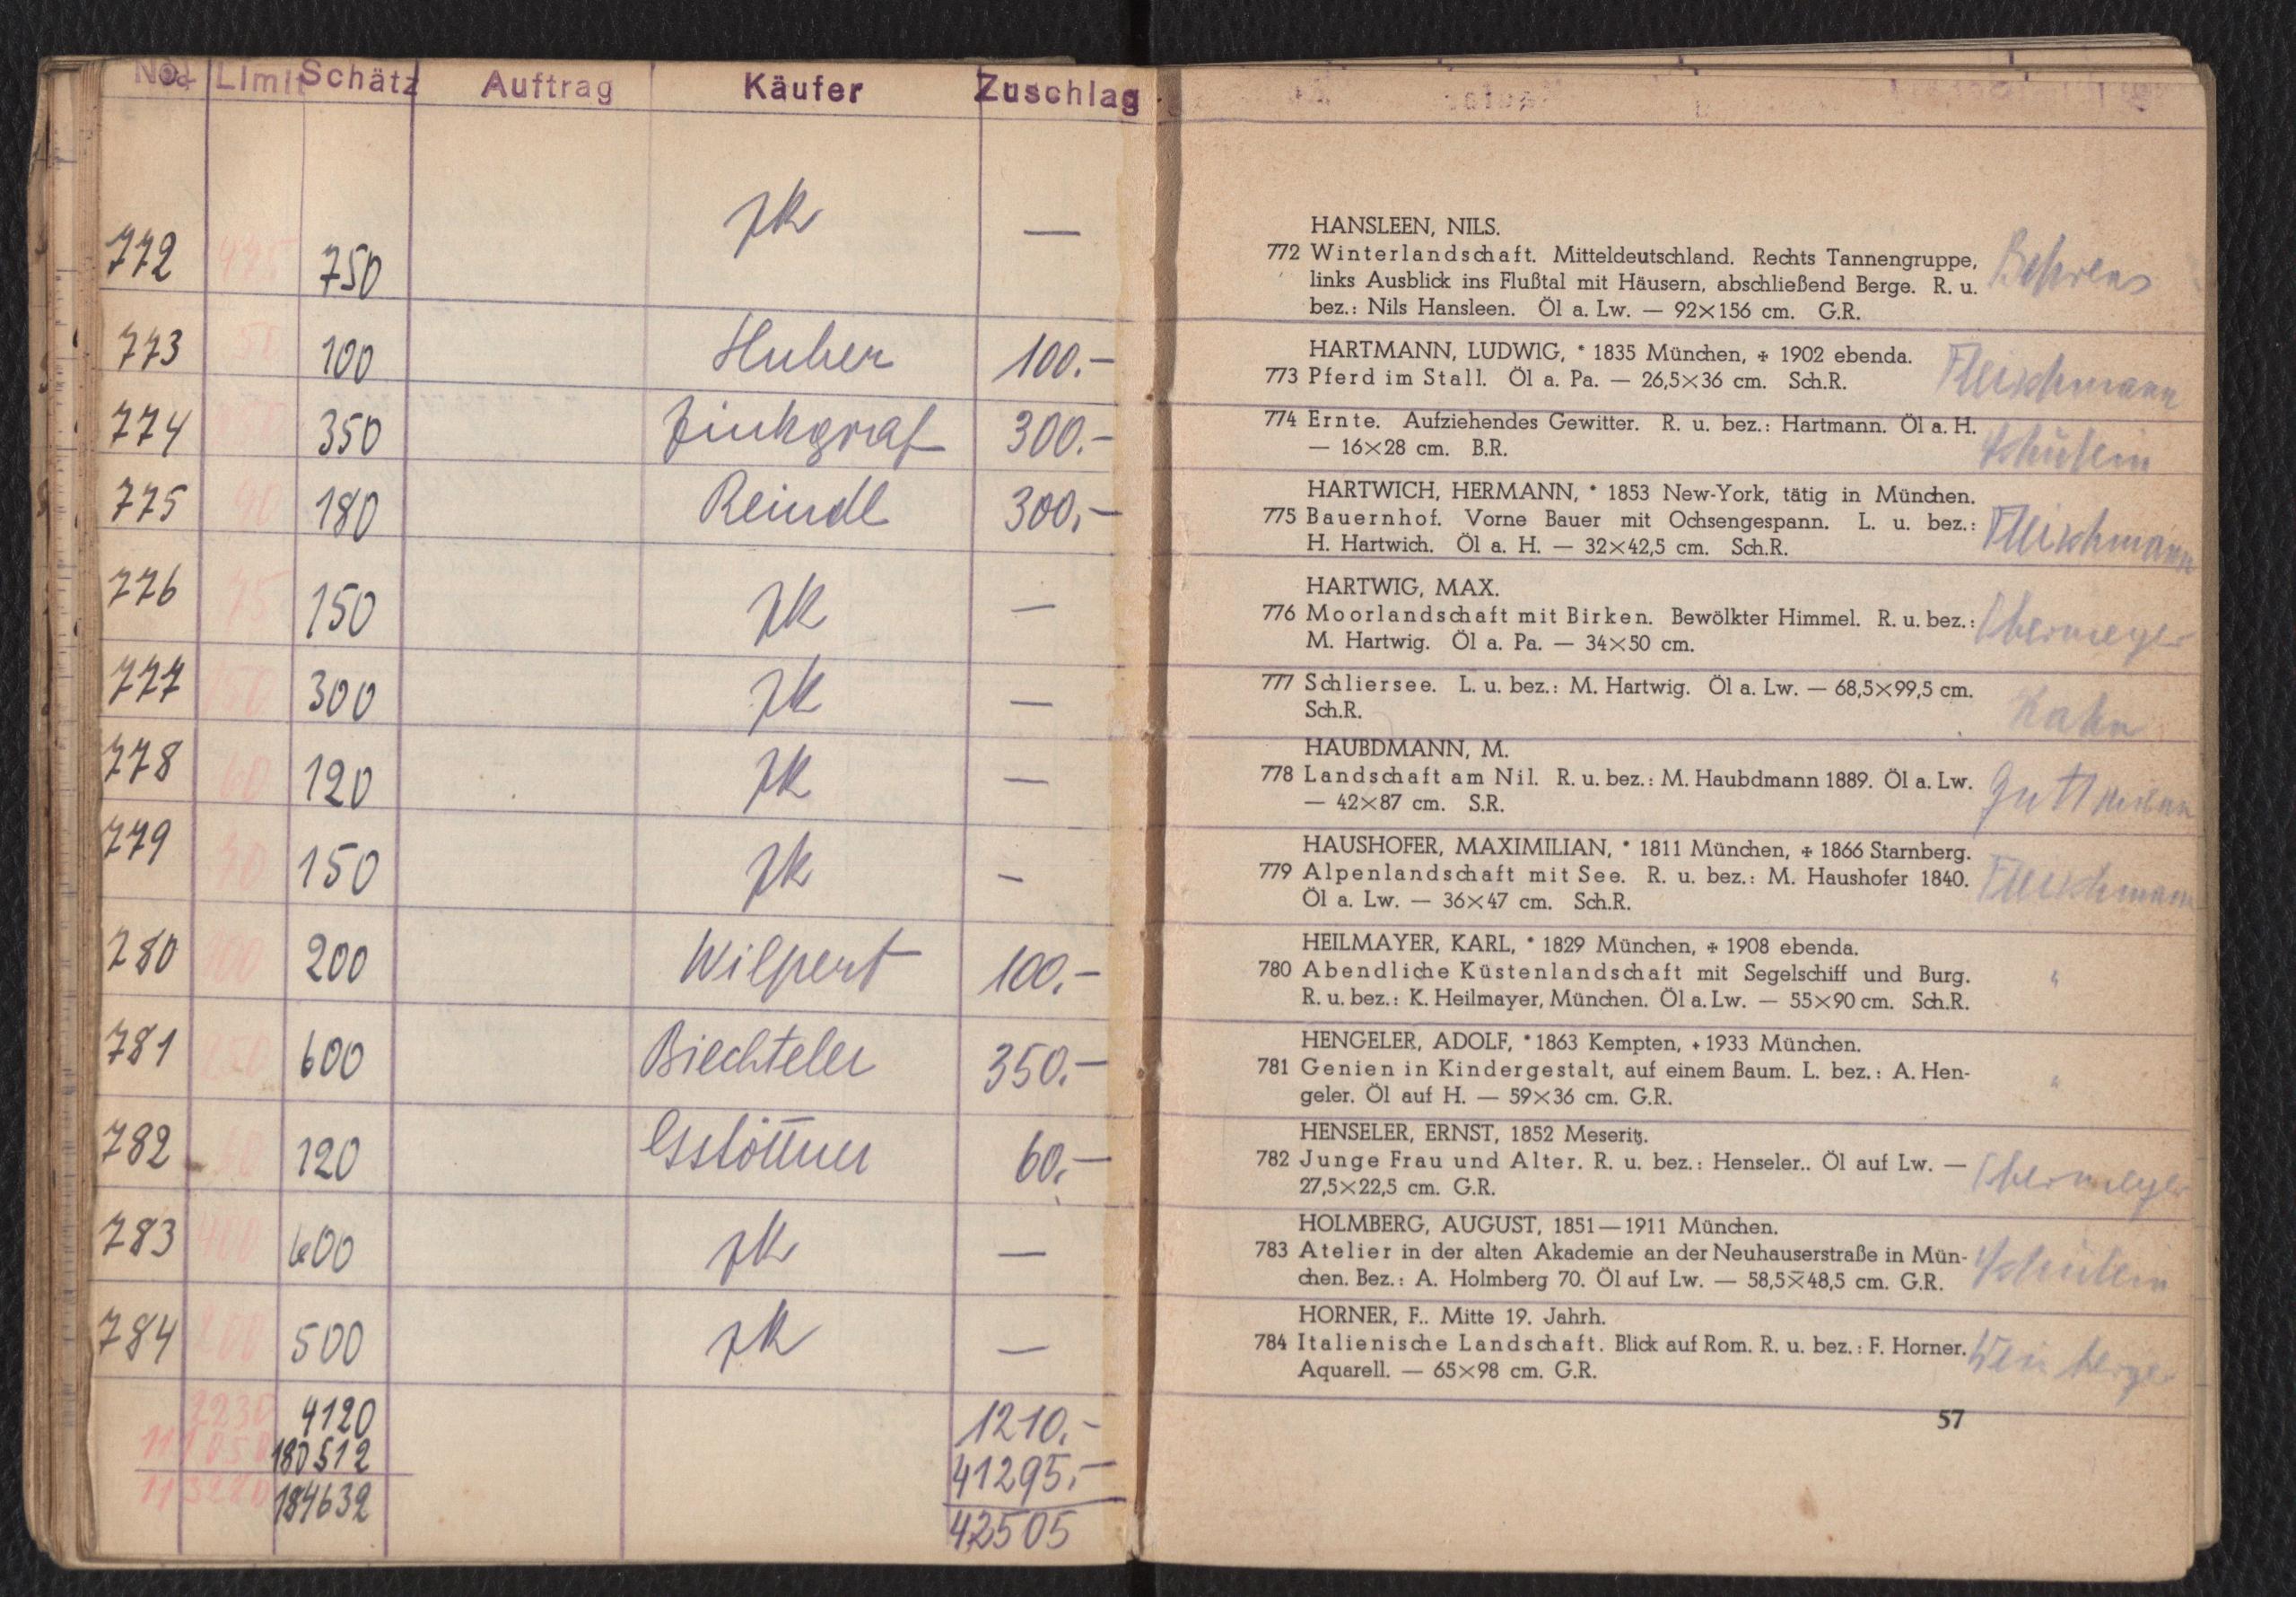 No. Limit Schätz Auftrag Käufer Zuschlag
772 475 750 zk —
773 50 100 Huber 100.–
774 350 Zinkgraf 300.–
775 90 180 Reindl 300.–
776 75 150 zk —
777 150 300 zk —
778 60 120 zk —
779 70 150 zk –
780 100 200 Wilpert 100.–
781 250 600 Biechteler 350.–
782 60 120 Gstöttner 60.–
783 400 600 zk —
784 200 500 zk —
2230 4120 1210.–
111050 180512 41295.–
113280 184632 42505
HANSLEEN, NILS.
772 Winterlandschaft. Mitteldeutschland. Rechts Tannengruppe, Behrens
links Ausblick ins Flußtal mit Häusern, abschließend Berge. R. u.
bez.: Nils Hansleen. Öl a. Lw. — 92×156 cm. G.R.
HARTMANN, LUDWIG, * 1835 München, + 1902 ebenda. Fleischmann
773 Pferd im Stall. Öl a. Pa. — 26,5×36 cm. Sch.R.
774 Ernte. Aufziehendes Gewitter. R. u. bez.: Hartmann. Öl a. H.
— 16×28 cm. B.R. Schülein
HARTWICH, HERMANN, * 1853 New-York, tätig in München.
775 Bauernhof. Vorne Bauer mit Ochsengespann. L. u. bez.: Fleischmann
H. Hartwich. Öl a. H. — 32×42,5 cm. Sch.R.
HARTWIG, MAX.
776 Moorlandschaft mit Birken. Bewölkter Himmel. R. u. bez.: Obermeyer
M. Hartwig. Öl a. Pa. — 34×50 cm.
777 Schliersee. L. u. bez.: M. Hartwig. Öl a. Lw. — 68,5×99,5 cm.
Sch.R. Kahn
HAUBDMANN, M.
778 Landschaft am Nil. R. u. bez.: M. Haubdmann 1889. Öl a. Lw. Guttmann
— 42×87 cm. S.R.
HAUSHOFER, MAXIMILIAN, * 1811 München, + 1866 Starnberg.
779 Alpenlandschaft mit See. R. u. bez.: M. Haushofer 1840. Fleischmann
Öl a. Lw. — 36×47 cm. Sch.R.
HEILMAYER, KARL, * 1829 München, + 1908 ebenda.
780 Abendliche Küstenlandschaft mit Segelschiff und Burg. "
R. u. bez.: K. Heilmayer, München. Öl a. Lw. — 55×90 cm. Sch.R.
HENGELER, ADOLF, * 1863 Kempten, + 1933 München.
781 Genien in Kindergestalt, auf einem Baum. L. bez.: A. Hen- "
geler. Öl auf H. — 59×36 cm. G.R.
HENSELER, ERNST, 1852 Meseritz.
782 Junge Frau und Alter. R. u. bez.: Henseler.. Öl auf Lw. — Obermeyer
27,5×22,5 cm. G.R.
HOLMBERG, AUGUST, 1851—1911 München.
783 Atelier in der alten Akademie an der Neuhauserstraße in Mün- Schülein
chen. Bez.: A. Holmberg 70. Öl auf Lw. — 58,5×48,5 cm. G.R.
HORNER, F.. Mitte 19. Jahrh.
784 Italienische Landschaft. Blick auf Rom. R. u. bez.: F. Horner. Weinberger
Aquarell. — 65×98 cm. G.R.
57